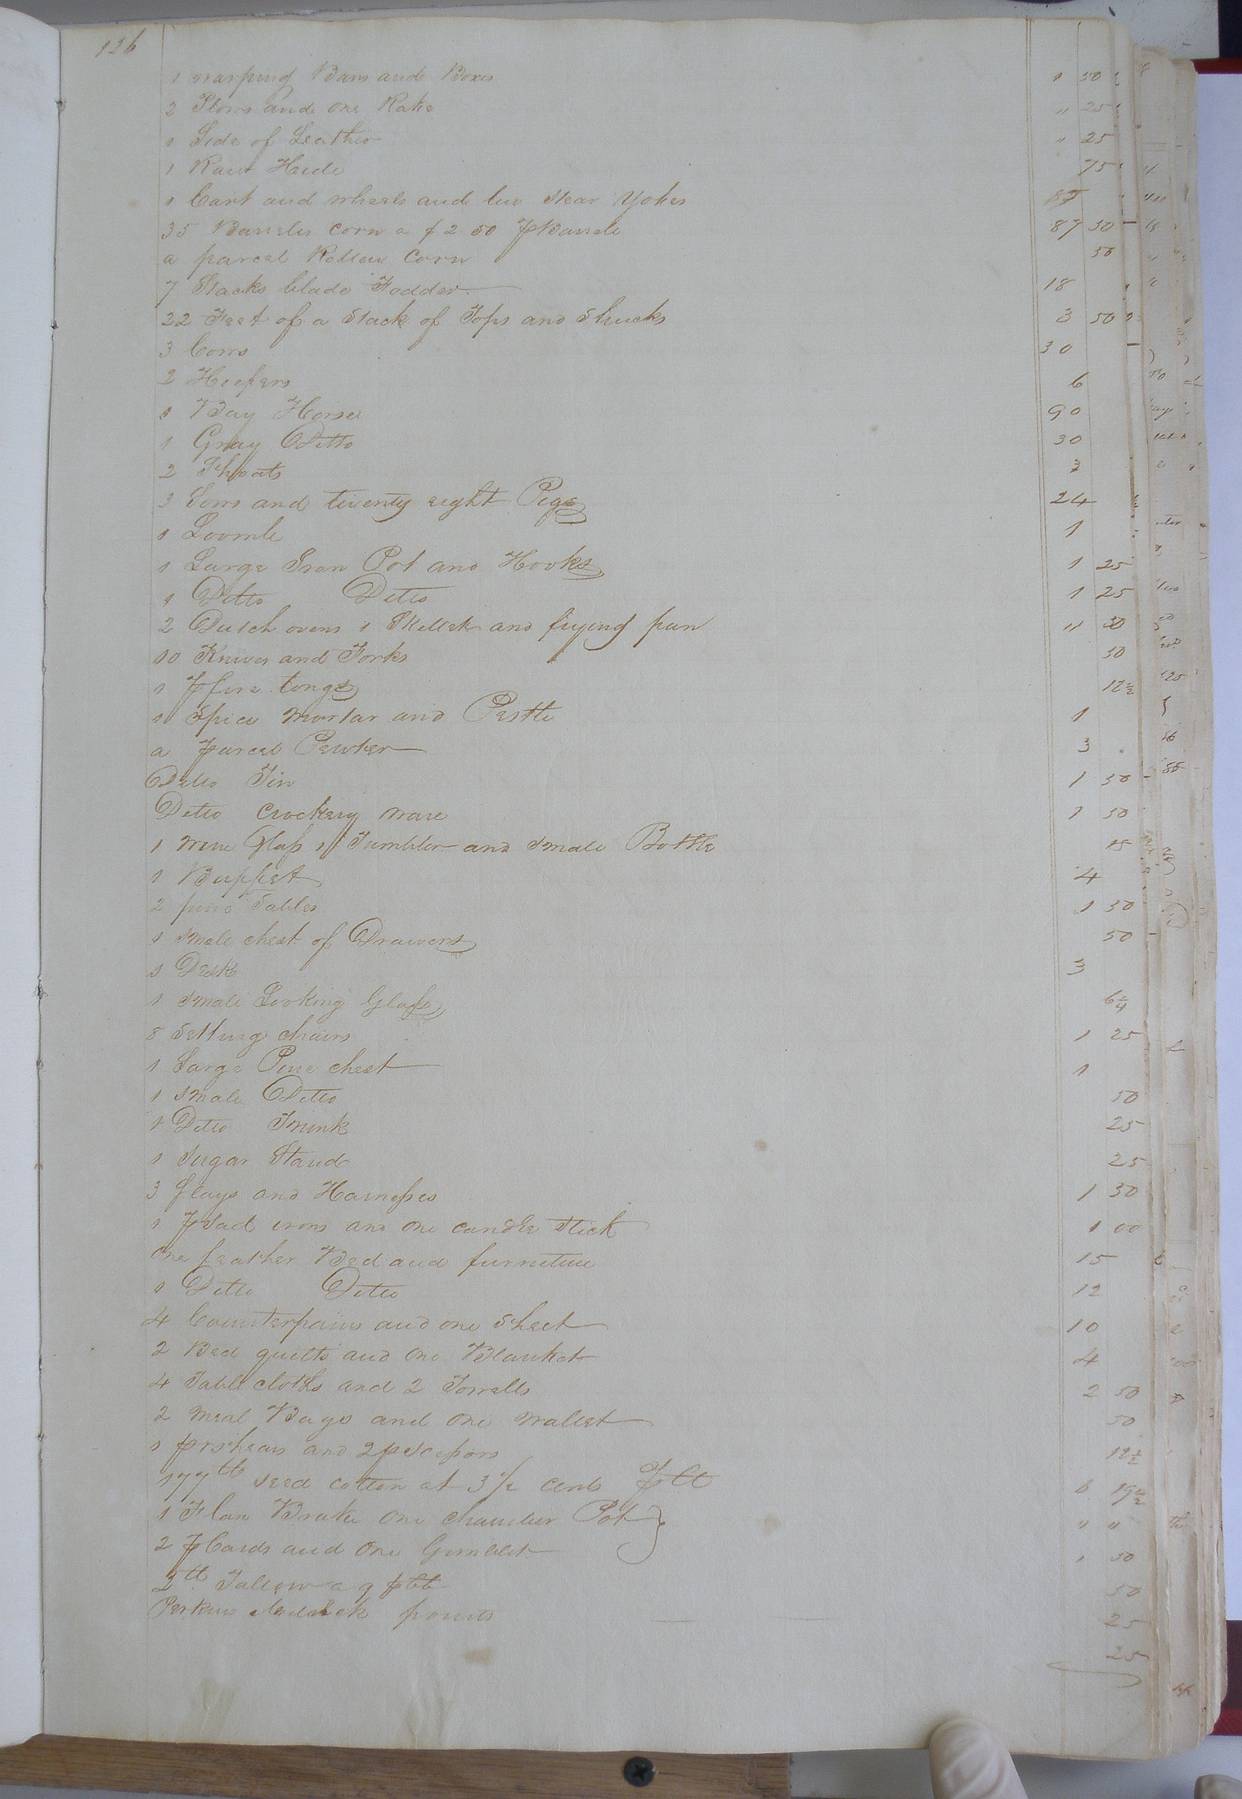 126
1 warping Bars and Boxes 1 50
2 Plows and one Rake " 25
1 Side of Leather " 25
1 Raw Hide 75
1 Cart and wheels and two Stear Yokes
35 Barrels corn a $ 2 50 ⅌ Barrele 87 50
a parcel Rotten Corn 50
7 Stacks blade Fodder 18
22 Feet of a Stack of Tops and Shucks 3 50
3 Cows 30
2 Heefers 6
1 Bay Horse 90
1 Gray Ditto 30
2 Shoats 3
3 Sows and twenty eight Pigs 24
1 Loomb 1
1 Large Iron Pot and Hooks 1 25
1 Ditto Ditto 1 25
2 Dutch ovens 1 Skillet and frying pan " 50
10 Knives and Forks 50
1 ⅌ fire tongs 12½
1 Spice Mortar and Pestle 1
a Parcel Pewter 3
Ditto Tin 1 50
Ditto Crockery Ware 1 50
1 Wine Glass 1 Tumbler and Smale Bottle
1 Buffet 4
2 pine Tables 1 50
1 Smale chest of Drawers 50
1 Desk 3
1 Smale Looking Glass 6¼
8 Setting chairs 1 25
1 Large Pine chest 1
1 Smale Ditto 50
1 Ditto Trunk 25
1 Sugar Stand 25
3 Slays and Harnesses 1 50
1 ⅌ Sad irons and one candle Stick 1 00
One feather Bed and furniture 15
1 Ditto Ditto 12
4 Counterpains and one Sheet 10
2 Bed quilts and One Blanket 4
4 Table cloths and 2 Towells 2 50
2 Meal Bags and one wallet 50
1 pr shears and 2 pr Scissors 12½
177 lb seed cotton at 3½ cents ⅌ lb 6 19½
1 Flax Brake One chamber Pot } " "
2 ⅌ Cards and One Gimblet 1 50
2 lb Tallow a 9 ⅌ lb 50
25
25